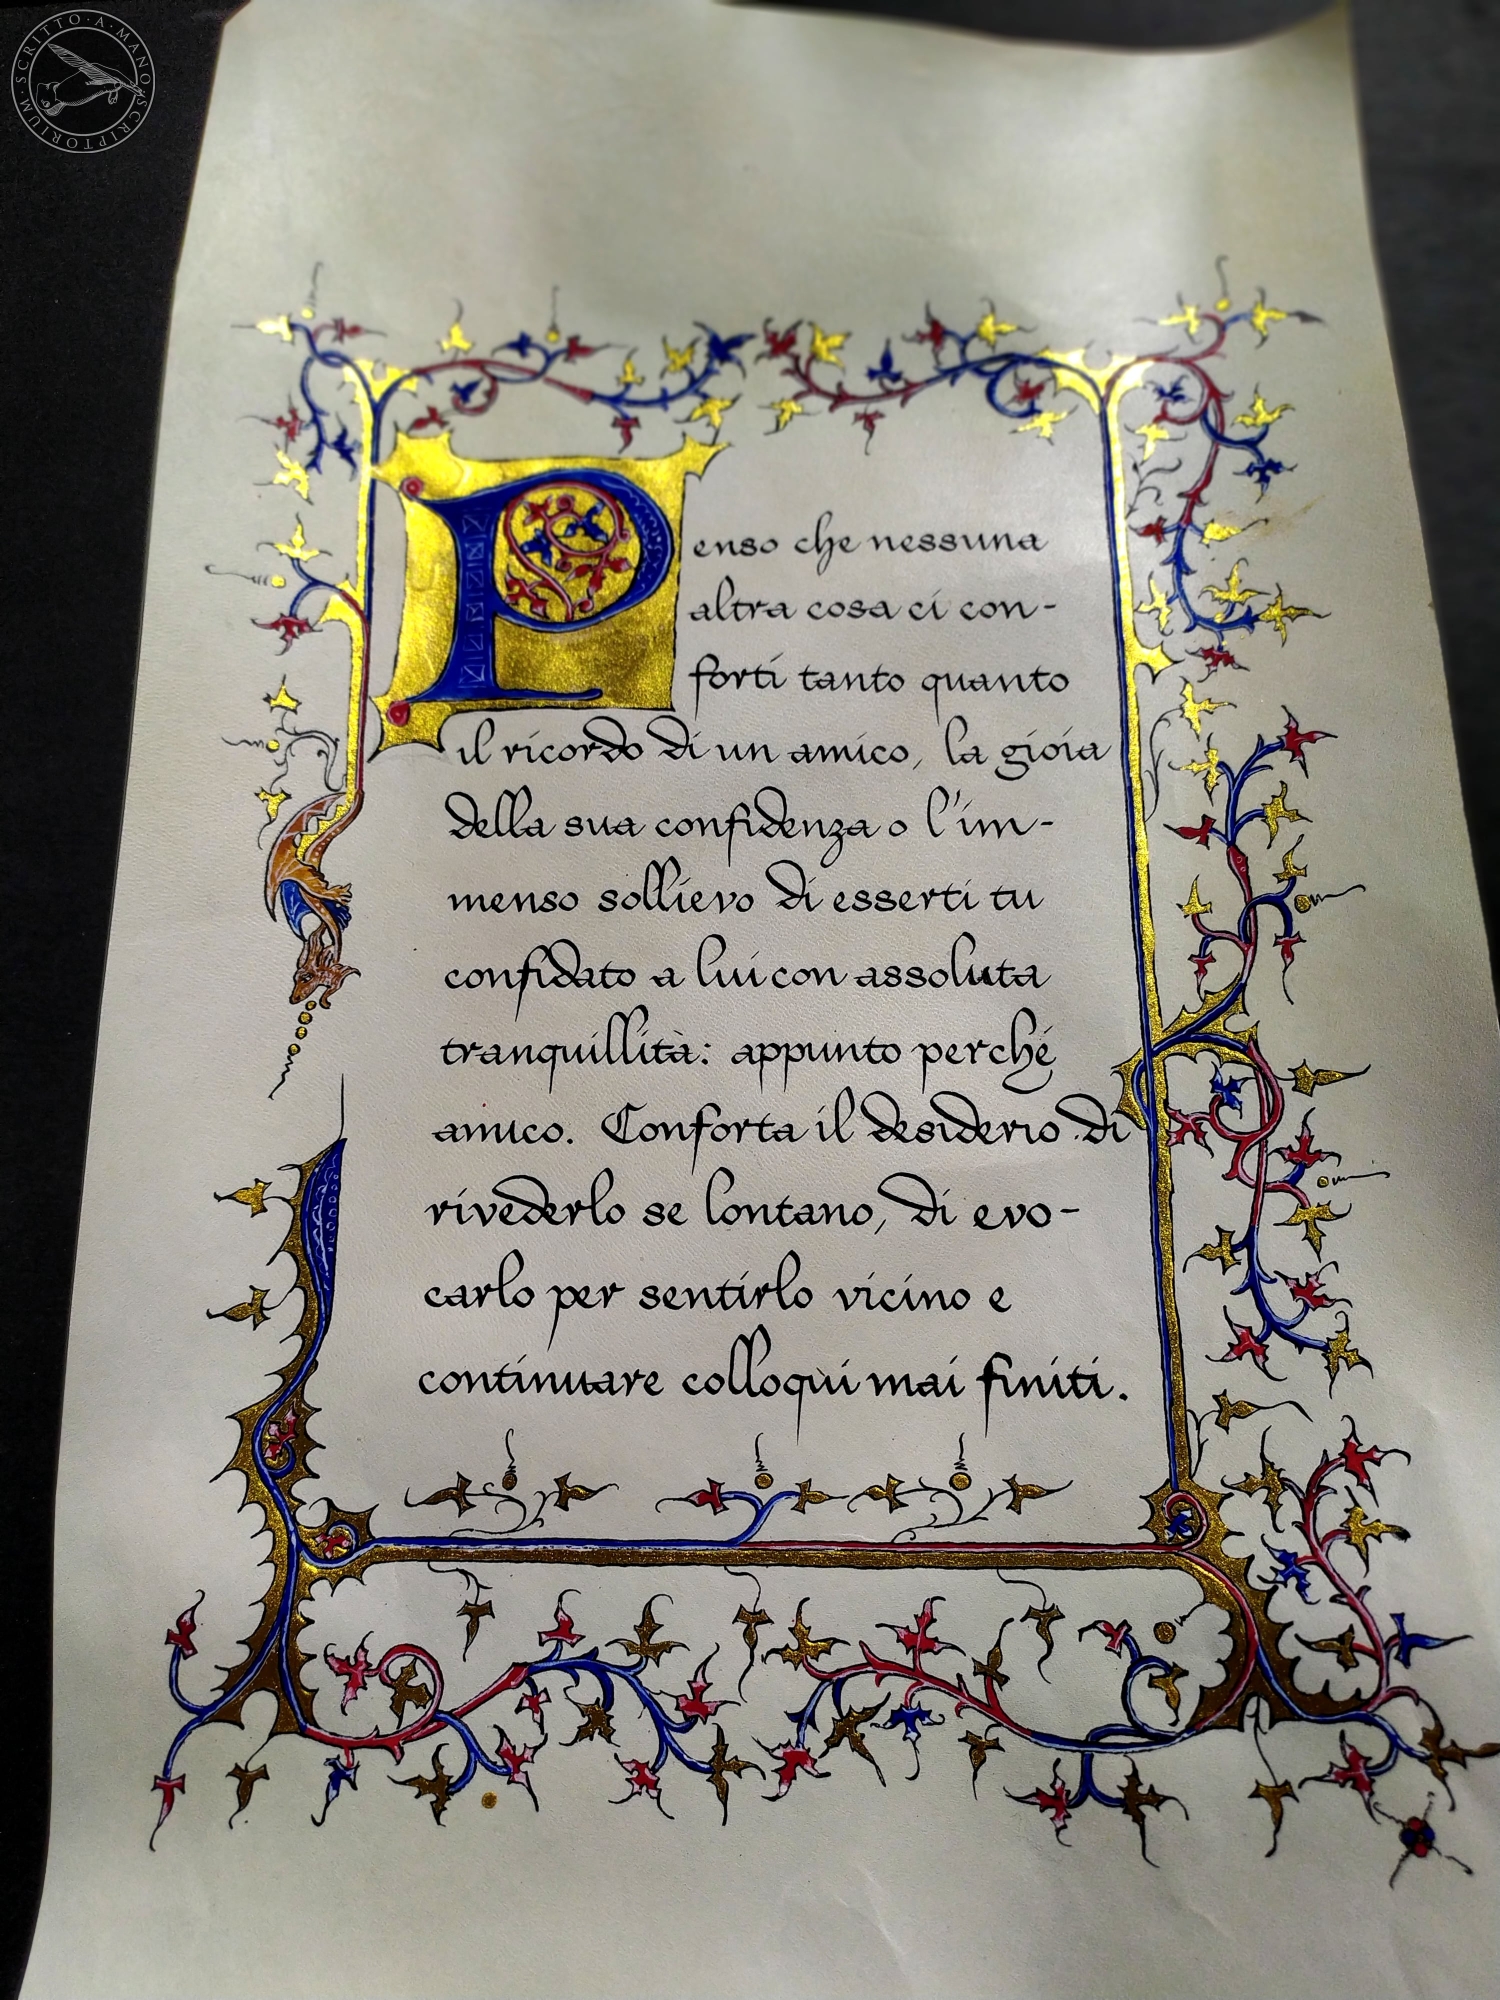 SCRITTO · A · MANO · SCRIPTORIUM ·
Penso che nessuna
altra cosa ci con-
forti tanto quanto
il ricordo di un amico, la gioia
della sua confidenza o l'im-
menso sollievo di esserti tu
confidato a lui con assoluta
tranquillità: appunto perché
amico. Conforta il desiderio di
rivederlo se lontano, di evo-
carlo per sentirlo vicino e
continuare colloqui mai finiti.